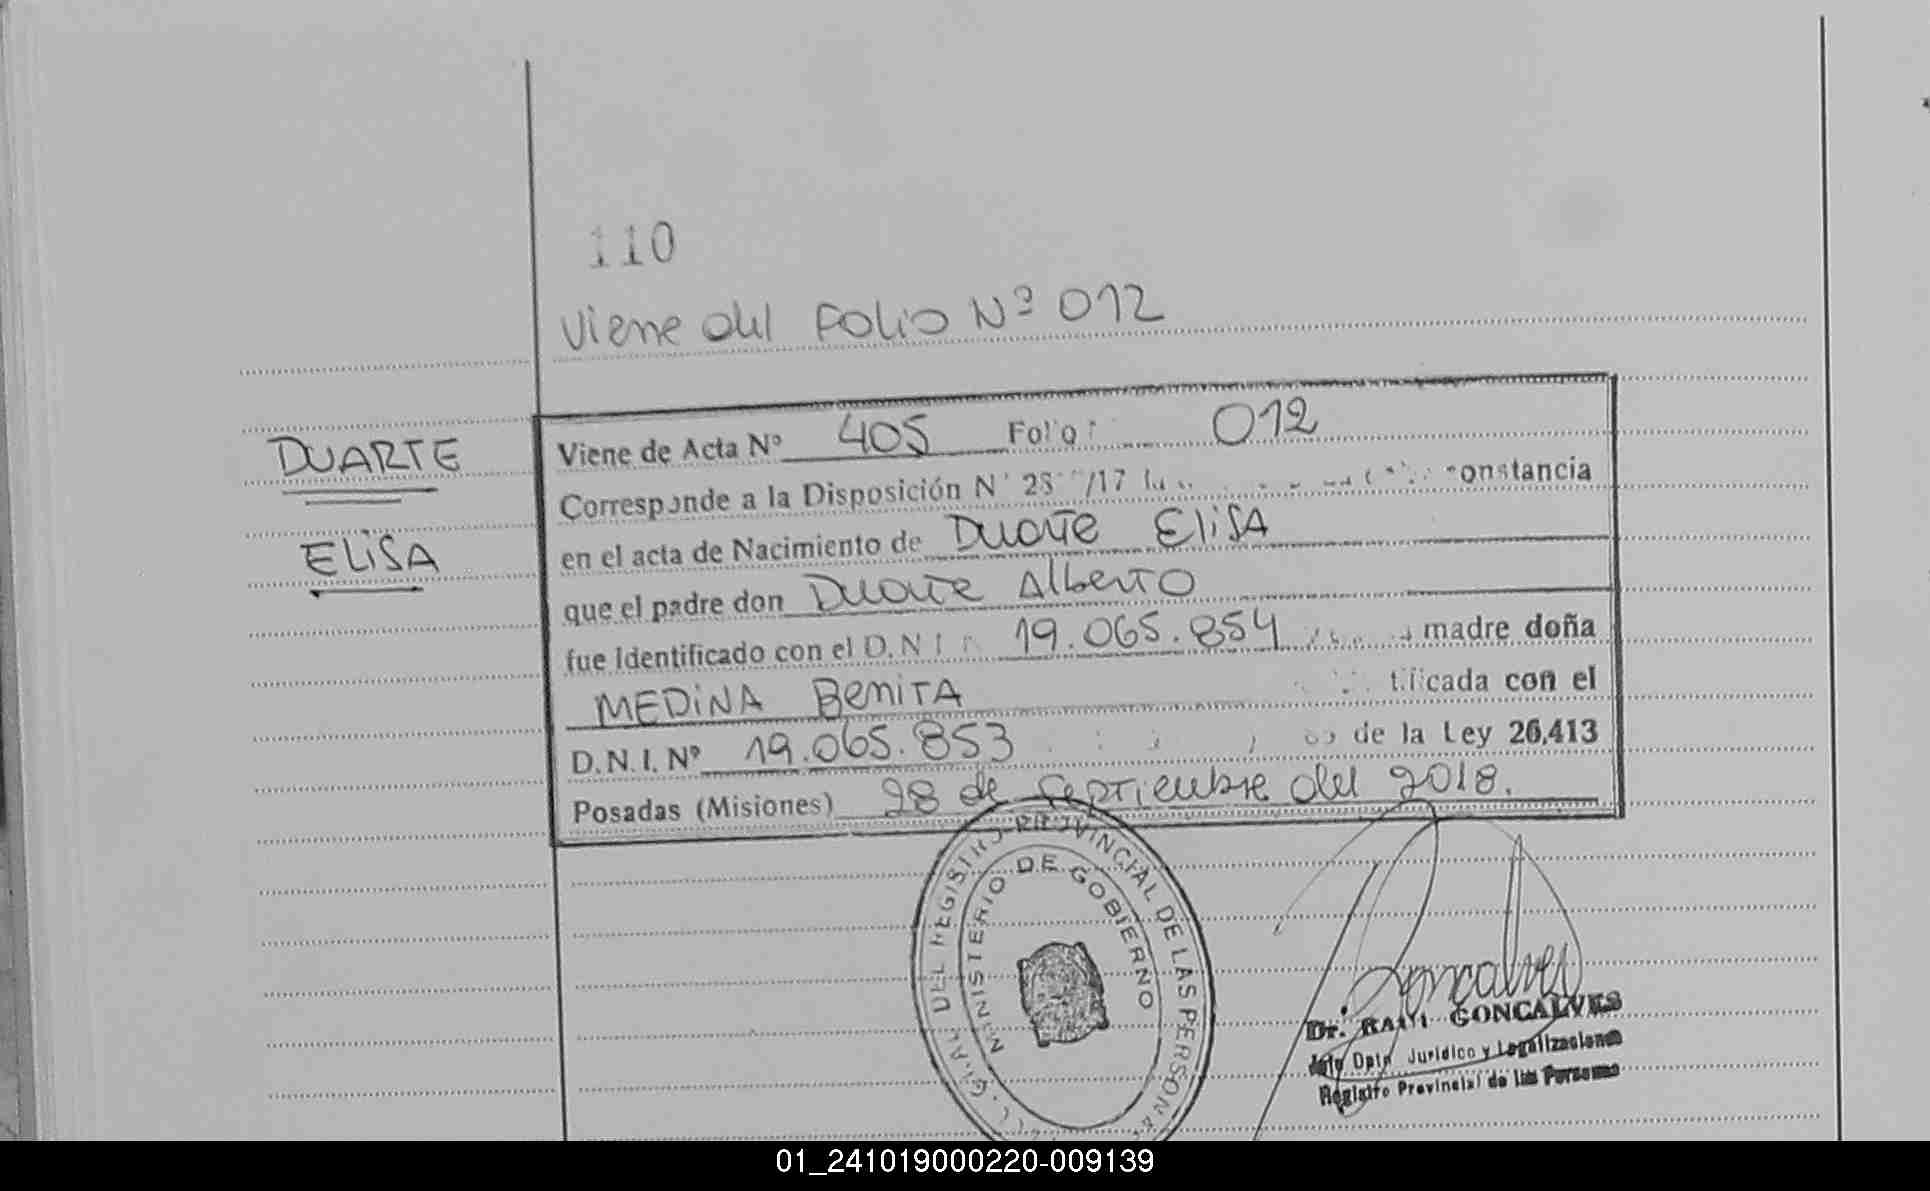 110
Viene del Folio Nº 012
Viene de Acta Nº 405 Folio: 012
Corresponde a la Disposición Nº /17 constancia
DUARTE
en el acta de Nacimiento de Duarte Elisa
ELISA
que el padre don Duarte Alberto
fue Identificado con el D.N.I. 19.065.854 madre doña
MEDINA Benita tificada con el
D.N.I. Nº 19.065.853 de la Ley 26,413
Posadas (Misiones) 28 de Septiembre del 2018.
GRAL. DEL REGISTRO PROVINCIAL DE LAS PERSONAS
MINISTERIO DE GOBIERNO
Goncalves
Dr. RAUL GONCALVES
Jefe Dpto. Jurídico y Legalizaciones
Registro Provincial de las Personas
01_241019000220-009139